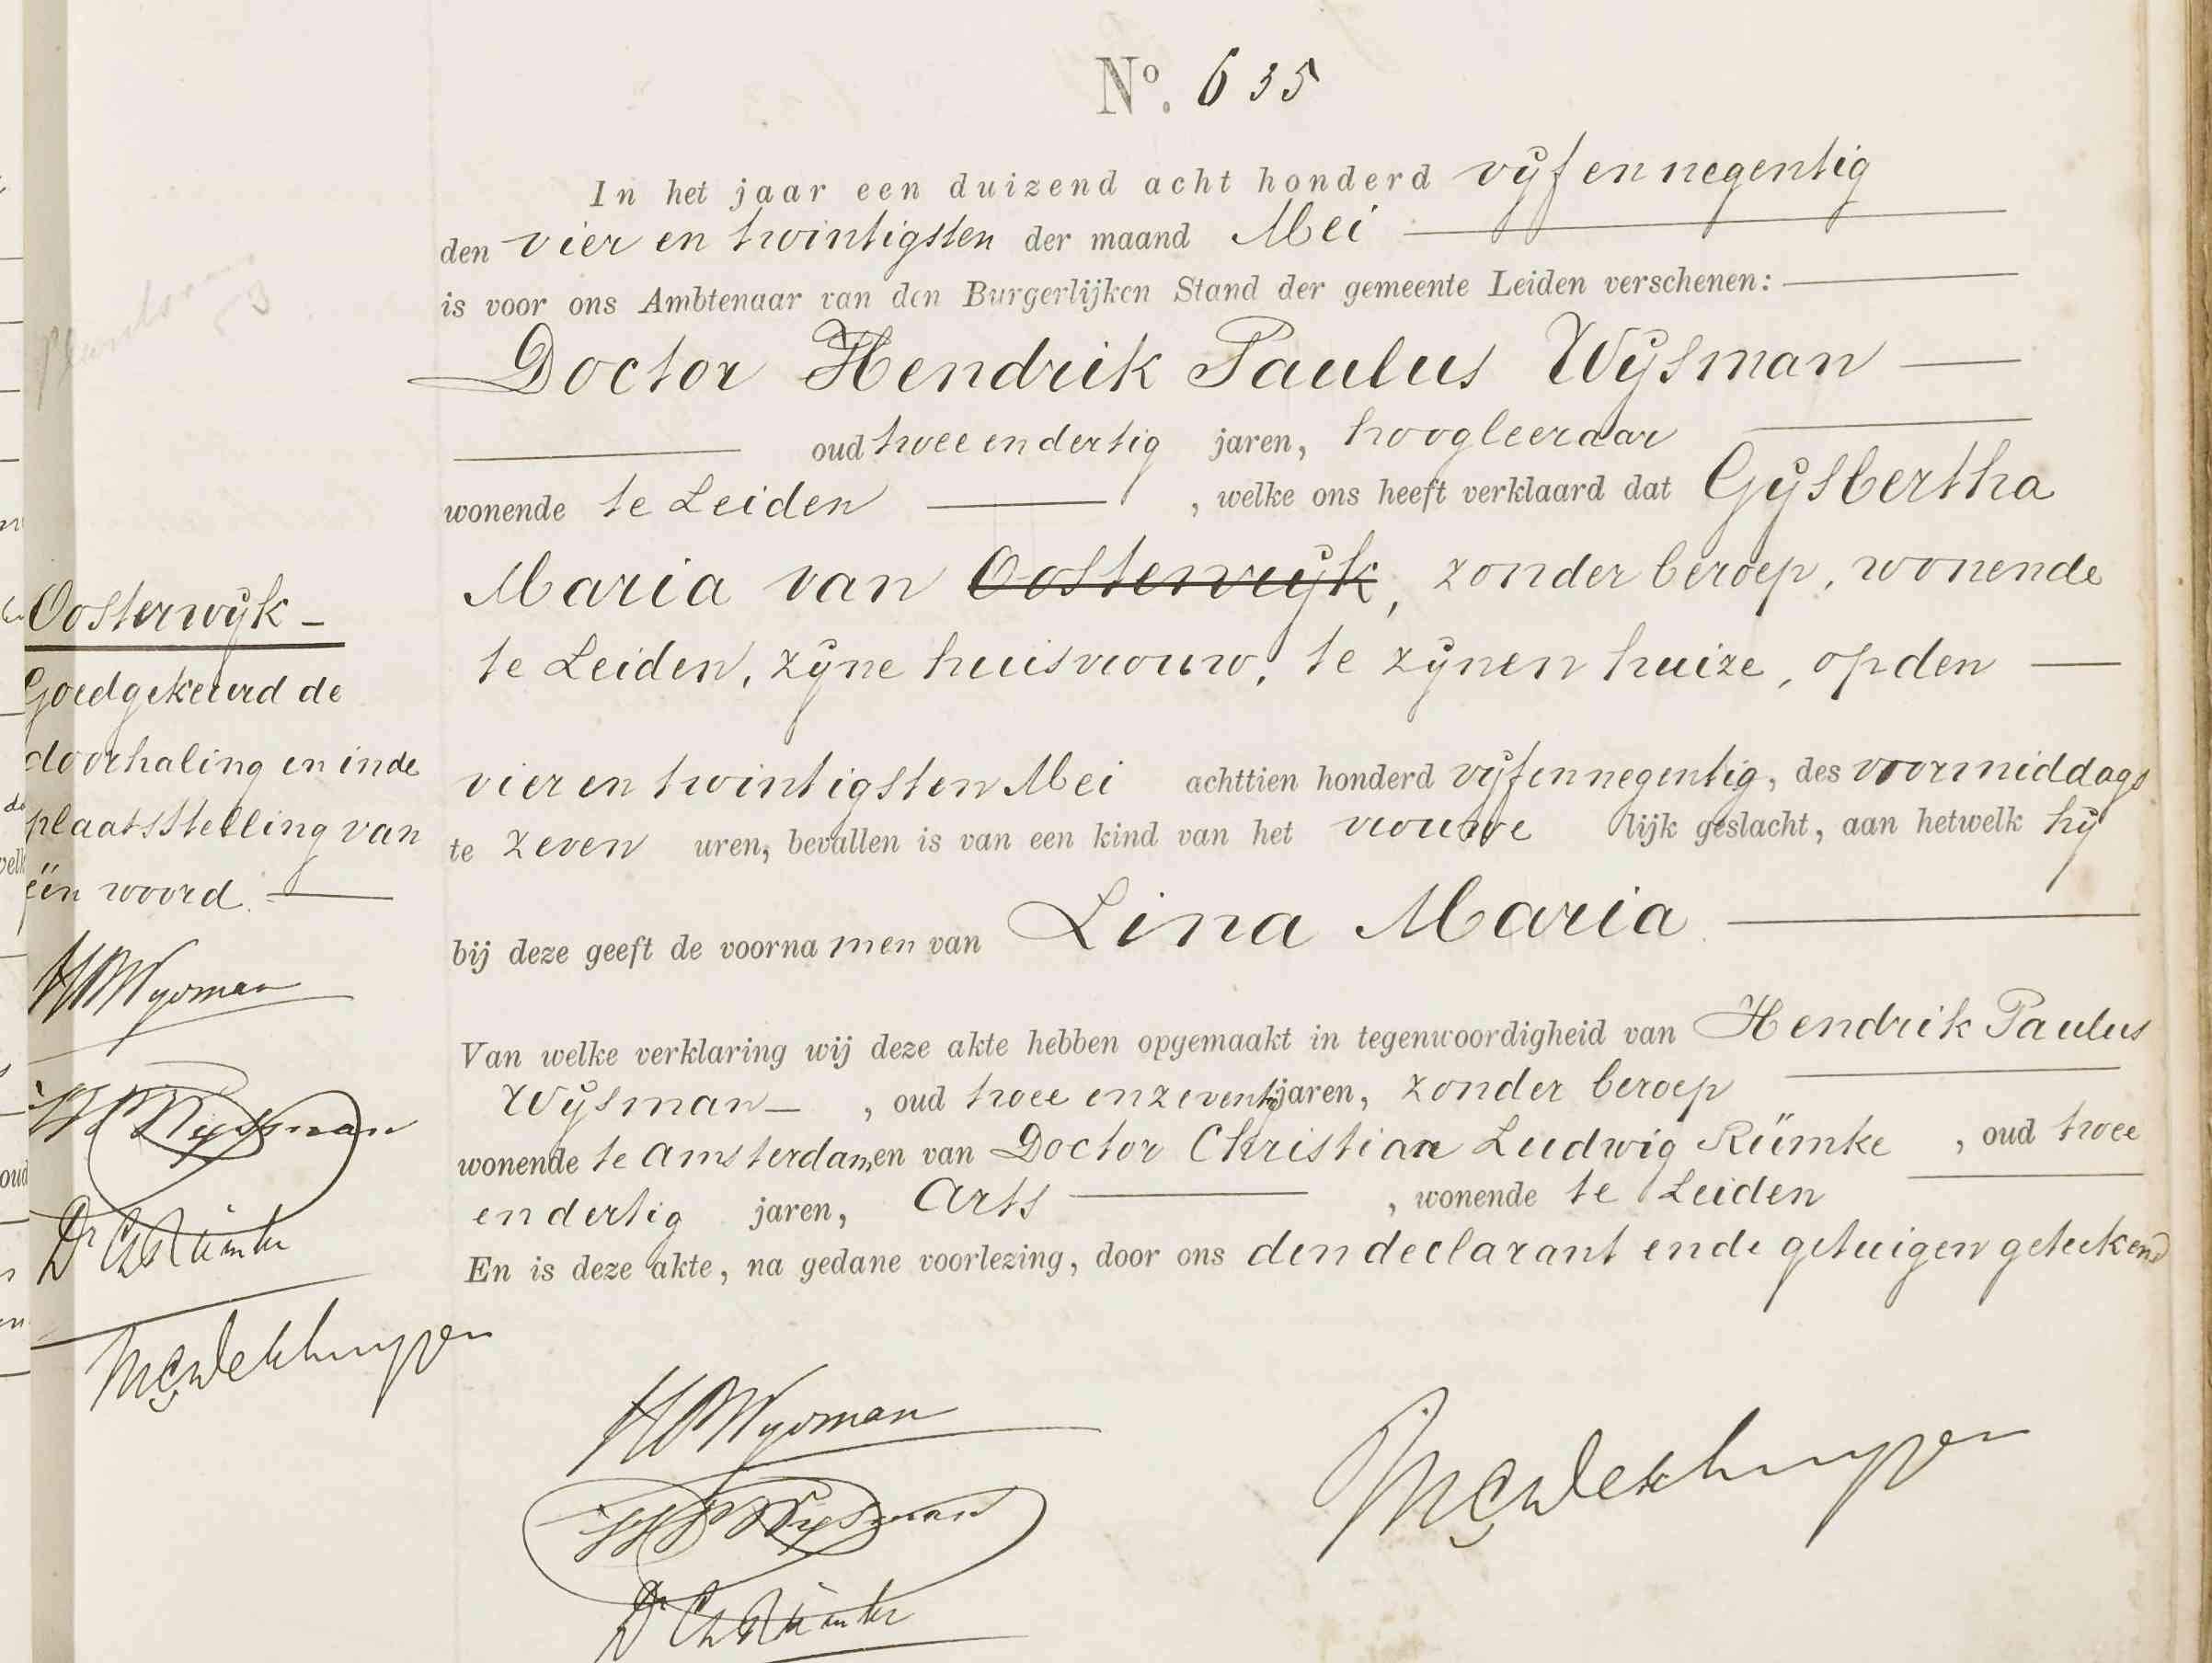 Nº. 635
In het jaar een duizend acht honderd vijf en negentig
den vier en twintigsten der maand Mei
is voor ons Ambtenaar van den Burgerlijken Stand der gemeente Leiden verschenen:
Doctor Hendrik Paulus Wijsman
oud twee en dertig jaren, hoogleeraar
wonende te Leiden , welke ons heeft verklaard dat Gijsbertha
Maria van Oosterwijk, zonder beroep, wonende
te Leiden, zijne huisvrouw, te zijnen huize, op den
vier en twintigsten Mei achttien honderd vijf en negentig, des voormiddags
te zeven uren, bevallen is van een kind van het vrouwe lijk geslacht, aan hetwelk hij
bij deze geeft de voorna men van Lina Maria
Van welke verklaring wij deze akte hebben opgemaakt in tegenwoordigheid van Hendrik Paulus
Wijsman , oud twee en zeventig jaren, zonder beroep
wonende te Amsterdam, en van Doctor Christian Ludwig Rümke , oud twee
en dertig jaren, Arts , wonende te Leiden
En is deze akte, na gedane voorlezing, door ons den declarant en de getuigen geteekend
HPWijsman
HP Wijsman
Dr Ch L Rümke
Oosterwijk
Goedgekeurd de
doorhaling en in de
plaatsstelling van
één woord.
HPWijsman
HP Wijsman
Dr Ch L Rümke